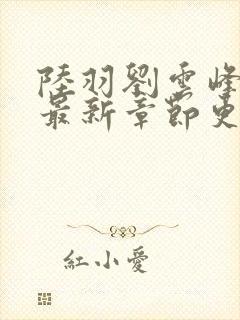 陸羽劉雲峰
最新章節更
紅小愛